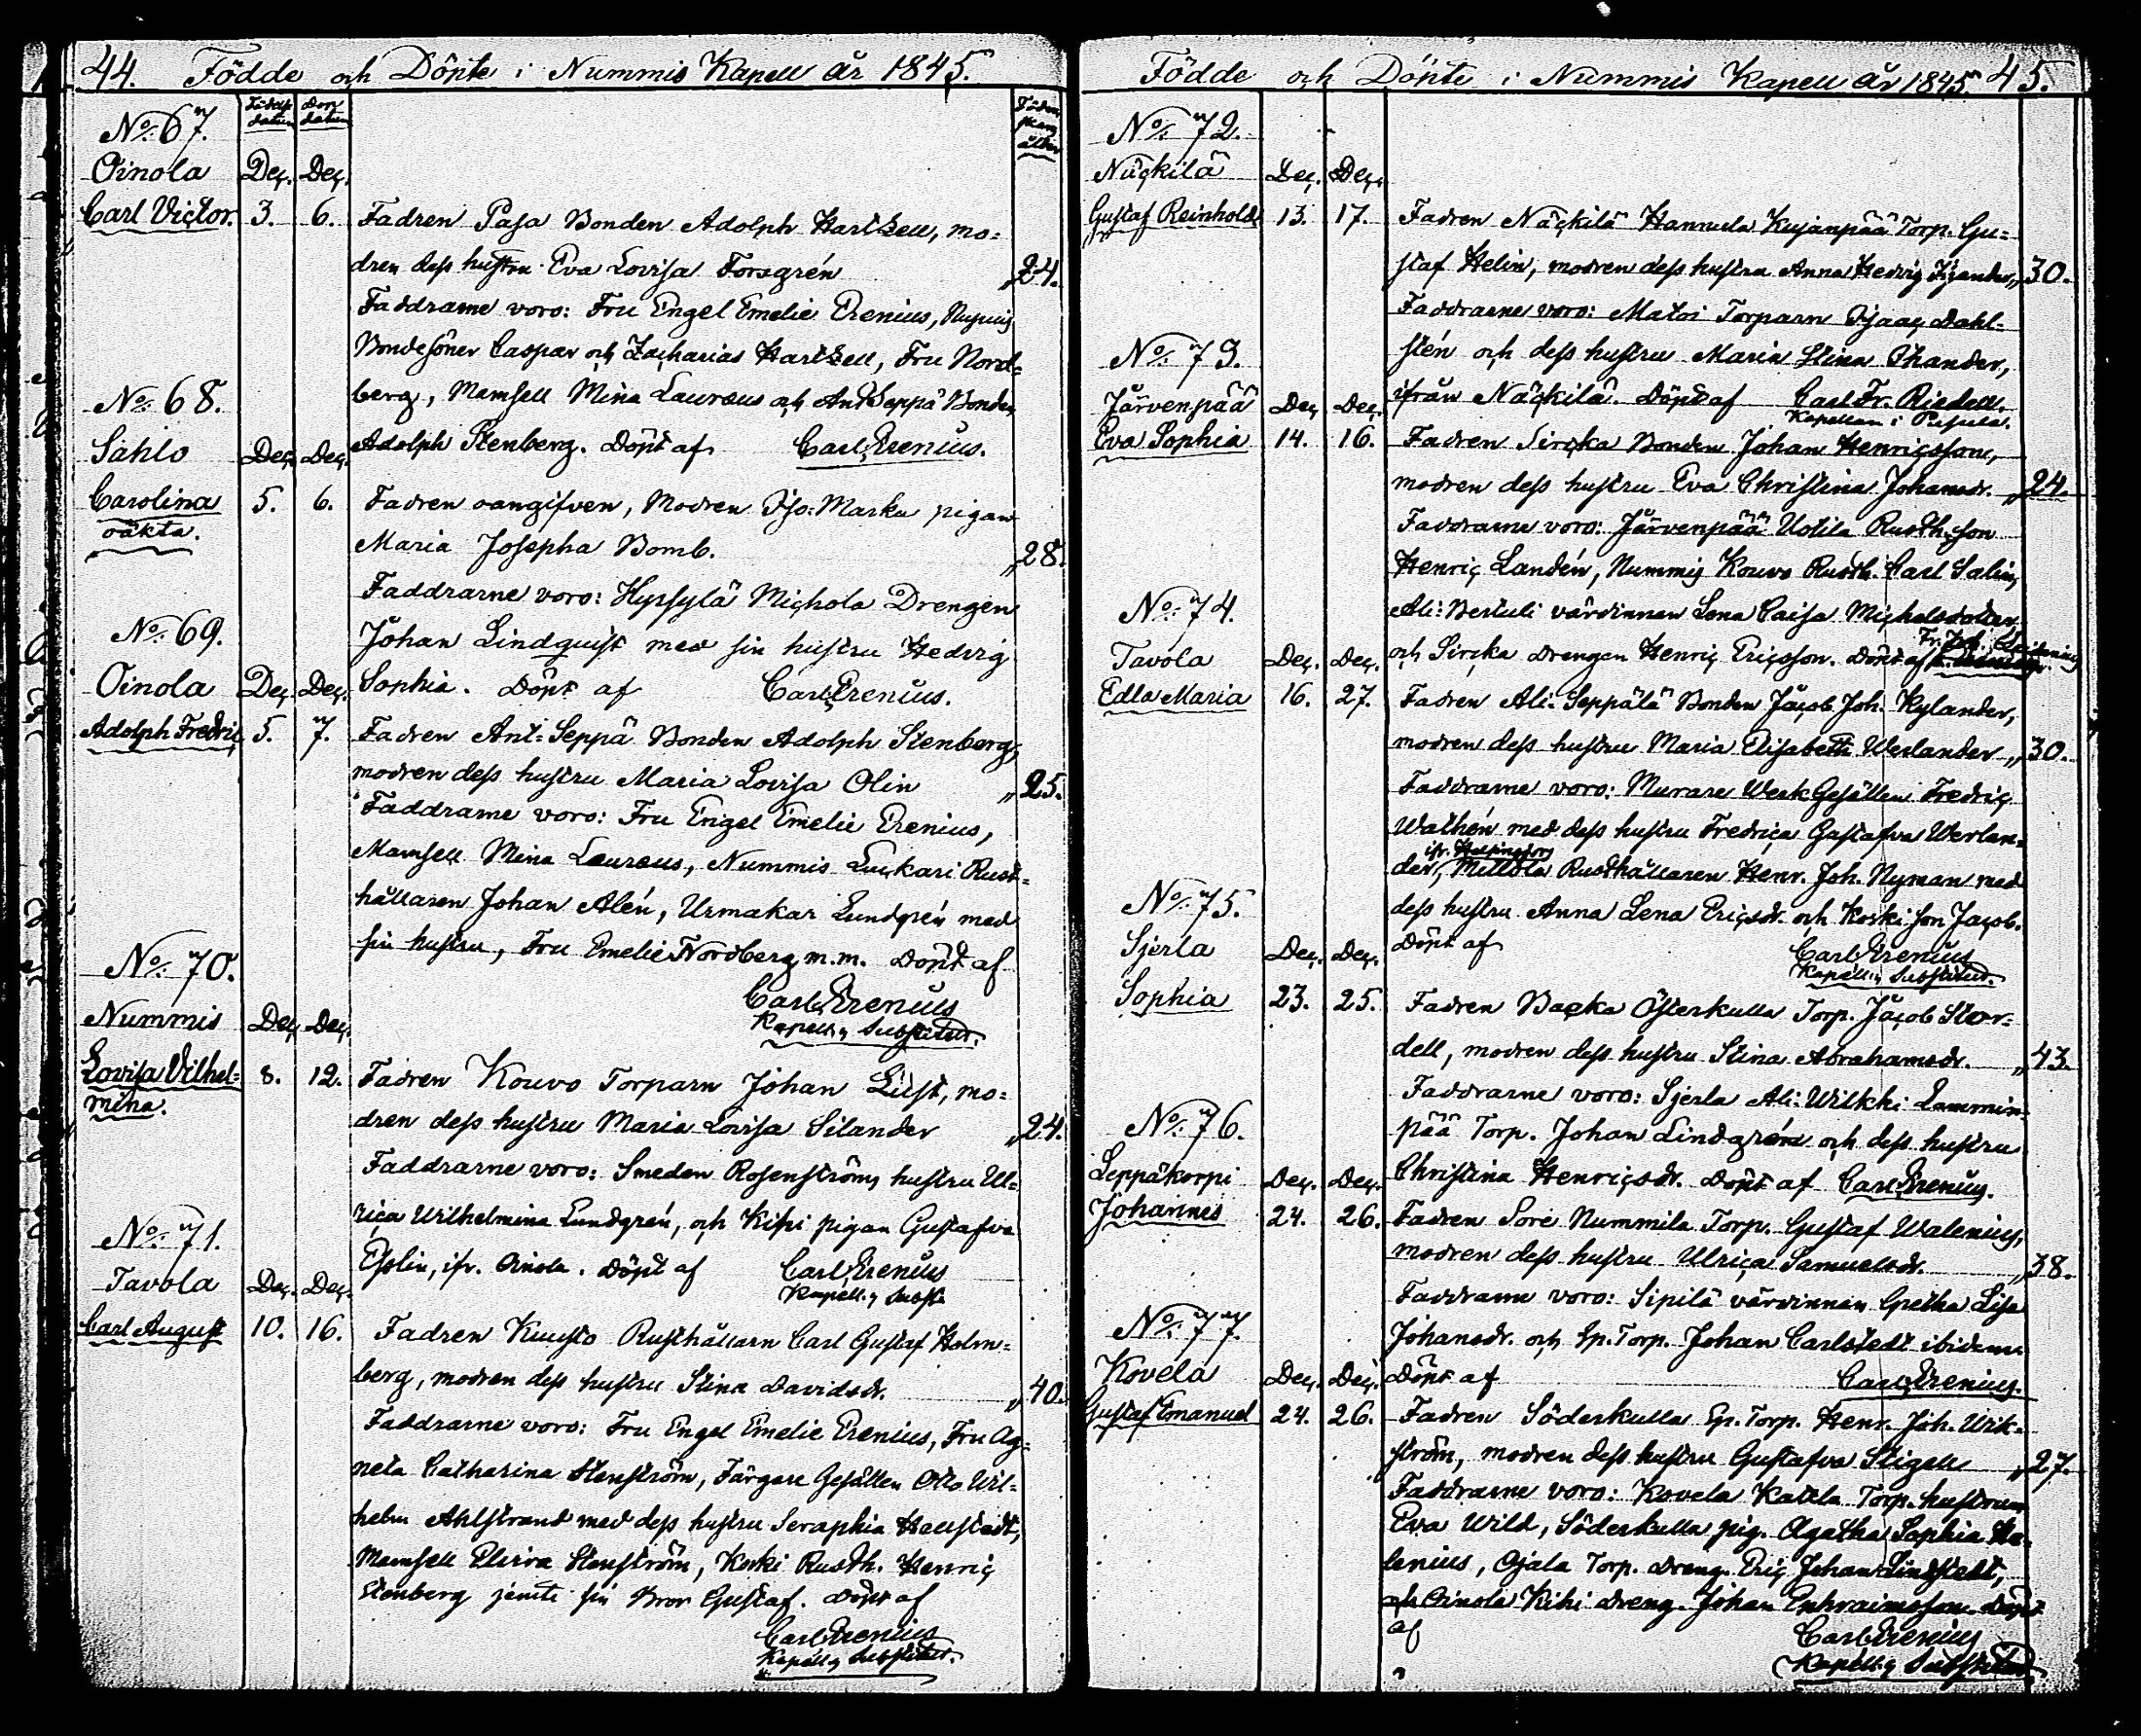 44. Födde och Döpte i Nummis Kapell år 1845.
Födelse datum Dop datum
Födersk ans ålder
No: 67.
Oinola Dec. Dec.
Carl Victor. 3. 6. Fadren Pasa Bonden Adolph Hartzell, mo=
dren dess hustru Eva Lovisa Forsgrén „24.
Faddrarne voro: Fru Engel Emelie Erenius, Nummis
Bondesöner Caspar och Zacharias Hartzell, Fru Nord=
No: 68.
berg, Mamsell Mina Lauraeus och Ant: Seppä Bonden
Sahlo Dec. Dec. Adolph Stenberg. Döpt af Carl Erenius.
Carolina 5. 6. Fadren oangifven, Modren Iso: Marku pigan
oäkta.
Maria Josepha Bomb. „28.
Faddrarne voro: Hyrsylä Michola Drengen
No: 69.
Johan Lindquist med sin hustru Hedvig
Oinola Dec. Dec. Sophia. Döpt af Carl Erenius.
Adolph Fredric 5. 7. Fadren Ant: Seppä Bonden Adolph Stenberg,
modren dess hustru Maria Lovisa Olin „25.
Faddrarne voro: Fru Engel Emelie Erenius,
Mamsell Mina Lauraeus, Nummis Luckari Rust=
hållaren Johan Alén, Urmakar Lundgrén med
sin hustru, Fru Emelie Nordberg m.m. Döpt af
No: 70.
Carl Erenius
Kapell:s Substitut.
Nummis Dec. Dec.
Lovisa Vilhel= 8. 12. Fadren Kouvo Torparn Johan Liust, mo=
mina.
dren dess hustru Maria Lovisa Silander „24.
Faddrarne voro: Smeden Rosenströms hustru Ul=
rica Wilhelmina Lundgrén, och Kihi pigan Gustafva
No: 71.
Eslin, ifr. Oinola. Döpt af Carl Erenius
Kapell:s Subst.
Tavola Dec. Dec.
Carl August 10. 16. Fadren Knusto Rusthållarn Carl Gustaf Holm=
berg, modren dess hustru Stina Davidsdr. „40.
Faddrarne voro: Fru Engel Emelie Erenius, Fru Ag=
neta Catharina Stenström, Färgare Gesällen Otto Wil=
helm Ahlstrand med dess hustru Seraphia Hallstedt,
Mamsell Elvira Stenström, Koski Rusth. Henric
Stenberg jemte sin Bror Gustaf. Döpt af
Carl Erenius
Kapell:s Substitut.
Födde och Döpte i Nummis Kapell år 1845. 45.
No: 72.
Näckilä Dec. Dec.
Gustaf Reinhold 13. 17. Fadren Näckilä Hannula Kujanpää Torp. Gu=
staf Helin, modren dess hustru Anna Hedvig Kjander „30.
Faddrarne voro: Matoi Torparn Isaac Dahl=
No: 73.
stén och dess hustru Maria Stina Thander,
Järvenpää Dec. Dec. ifrån Näckilä. Döpt af Carl Fr. Riedell.
Kapellan i Pusula.
Eva Sophia 14. 16. Fadren Sircka Bonden Johan Henricsson,
modren dess hustru Eva Christina Johansdr. „24.
Faddrarne voro: Järvenpää Uotila Rusth: son
Henric Landén, Nummis Kouvo Rusth. Carl Salin,
No: 74.
Ali: Bertuli värdinnan Lena Caisa Michelsdotter,
Tavola Dec. Dec. och Sircka Drengen Henric Ericsson. Döpt af
Edla Maria 16. 27. Fadren Ali: Seppälä Bonden Jacob Joh. Kylander,
modren dess hustru Maria Elisabeth Werlander „30.
Faddrarne voro: Murare Werk Gesällen Fredric
Wathén med dess hustru Fredrica Gustafva Werlan=
ifr. Helsingfors
der, Millola Rusthållaren Henr. Joh. Nyman med
No: 75.
dess hustru Anna Lena Ericsdr. och Koski Son Jacob.
Sjerla Dec. Dec. Döpt af Carl Erenius
Kapell:s Substitut.
Sophia 23. 25. Fadren Backa Österkulla Torp. Jacob Stor=
dell, modren dess hustru Stina Abrahamsdr. „43.
Faddrarne voro: Sjerla Ali: Wilkki Lammin=
No: 76.
pää Torp. Johan Lindgrén och dess hustru
Leppäkorpi Dec. Dec. Christina Henricsdr. Döpt af Carl Erenius.
Johannes 24. 26. Fadren Sore Nummila Torp. Gustaf Walenius,
modren dess hustru Ulrica Samuelsdr. „38.
Faddrarne voro: Sipilä värdinnan Gretha Lisa
No: 77.
Johansdr. och Sp. Torp. Johan Carlstedt ibidem
Kovela Dec. Dec. Döpt af Carl Erenius.
Gustaf Emanuel 24. 26. Fadren Söderkulla Sp. Torp. Henr. Joh. Wik=
ström, modren dess hustru Gustafva Stigell „27.
Faddrarne voro: Kovela Katila Torp. hustrun
Eva Wild, Söderkulla pig. Agatha Sophia Wa=
lenius, Ojala Torp. Dreng. Eric Johan Lindstedt,
och Oinola Kihi dreng. Johan Ephraimsson. Döpt
af Carl Erenius
Kapell:s Substitut.